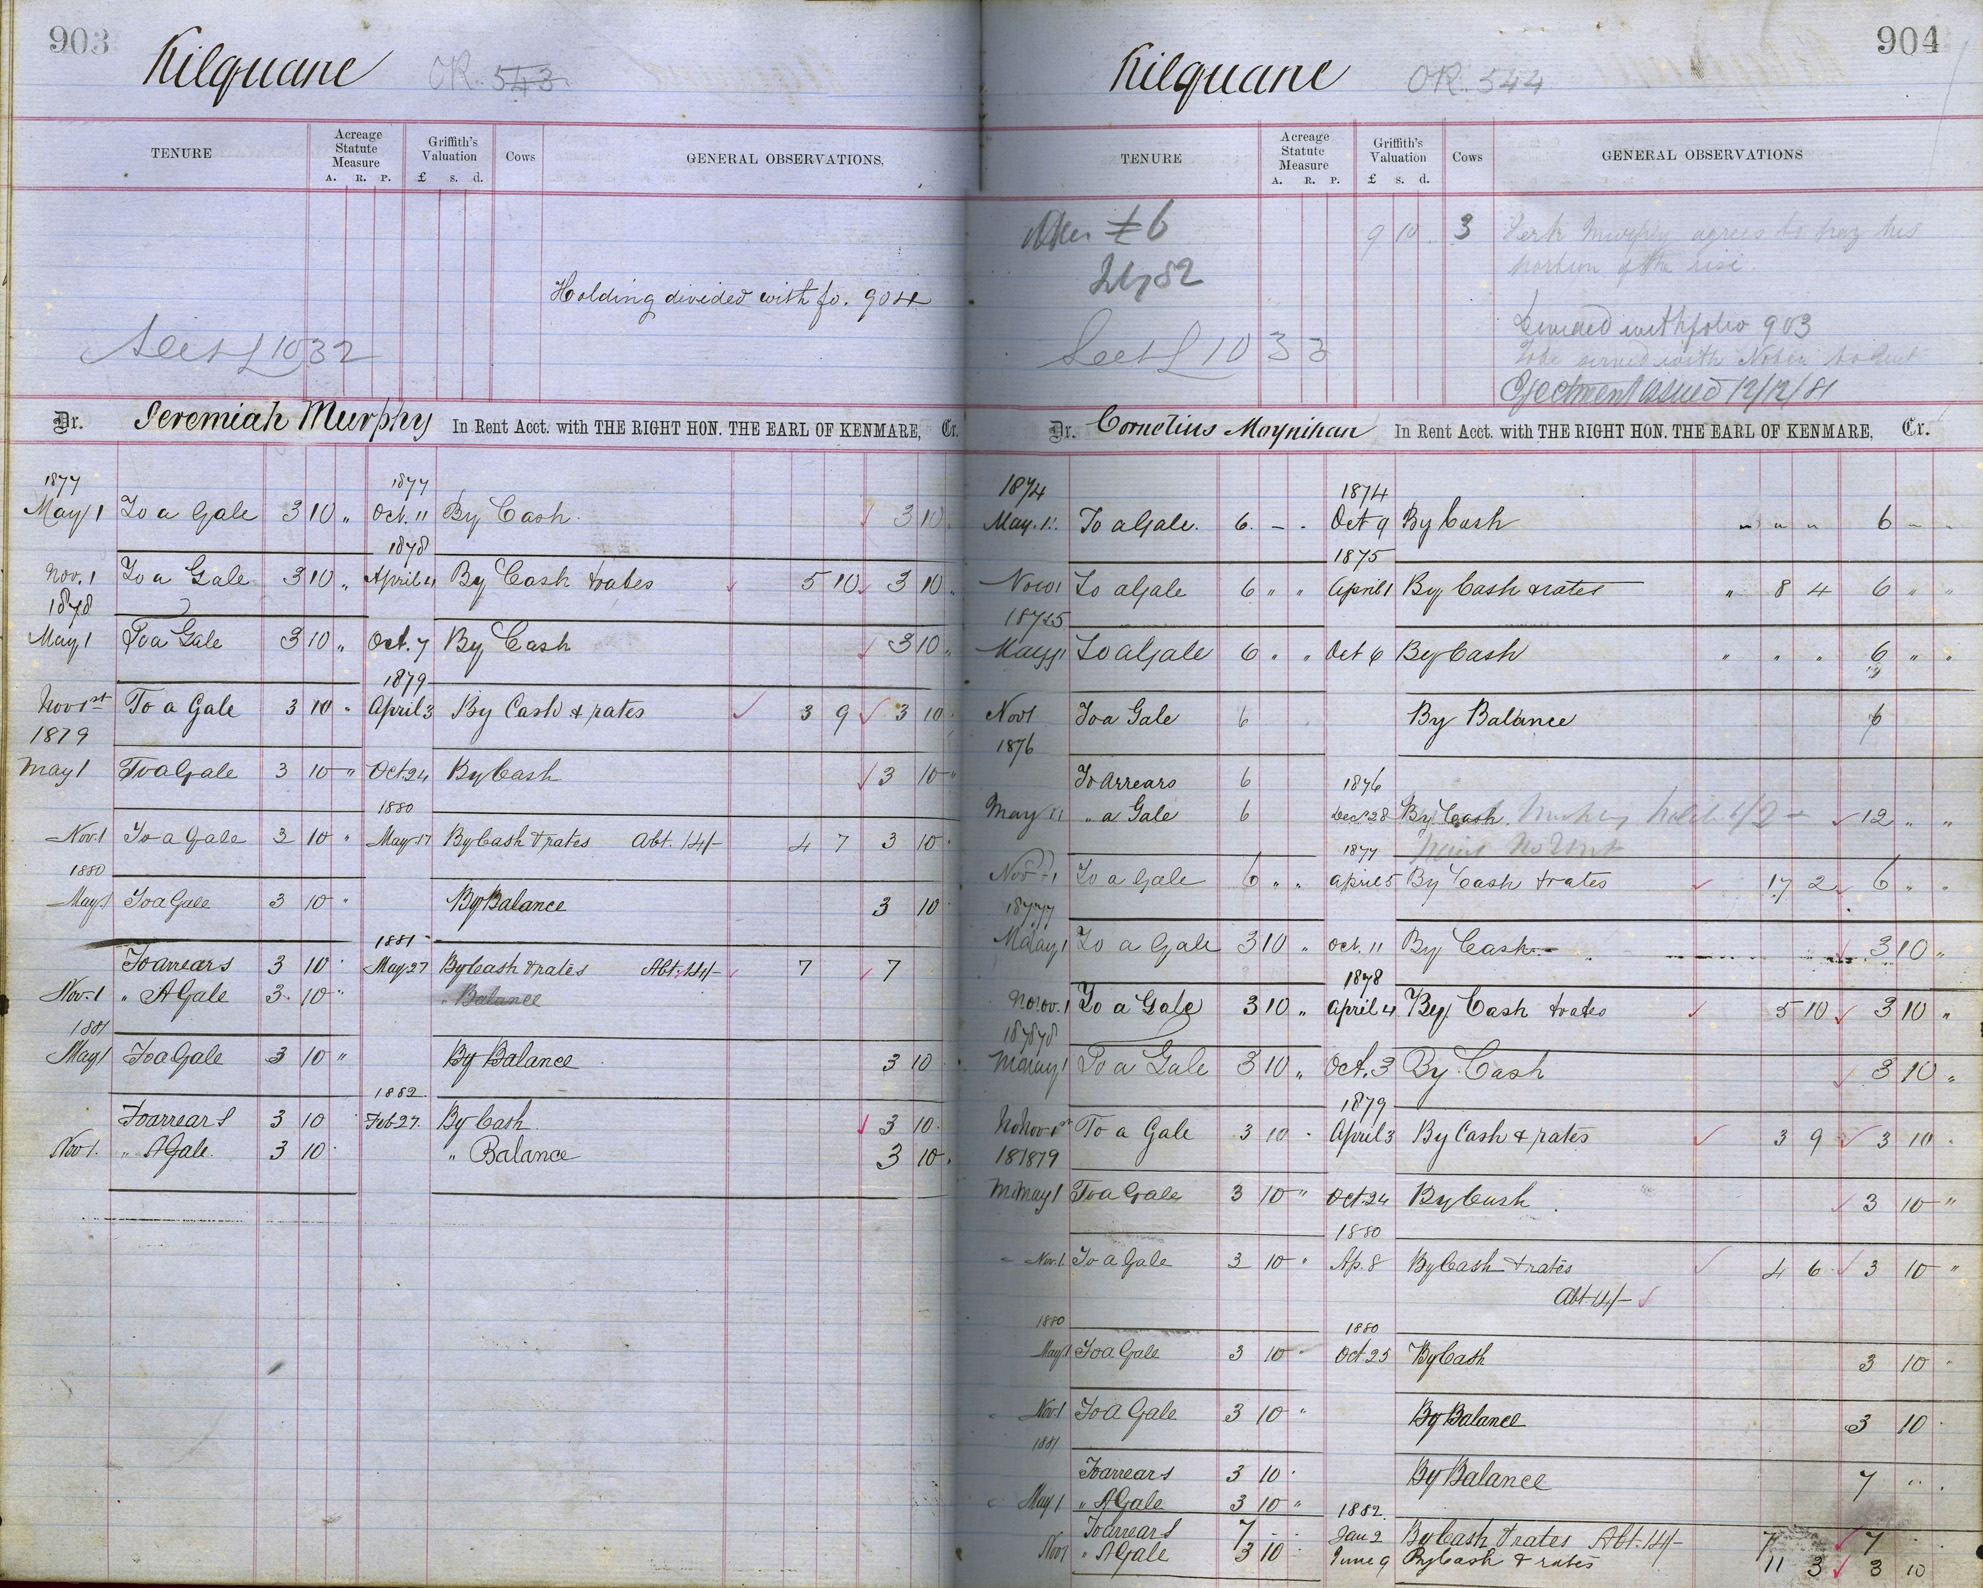 903
Kilquane OR. 543.
TENURE
Acreage Statute Measure
A. R. P.
Griffith's Valuation
£ s. d.
Cows
GENERAL OBSERVATIONS,
Holding divided with fo. 904
1032
Dr. Jeremiah Murphy In Rent Acct. with THE RIGHT HON. THE EARL OF KENMARE, Cr.
1877 1877
May 1 To a Gale 3 10 „ Oct. 11 By Cash 3 10
1878
Nov. 1 To a Gale 3 10 „ April 4 By Cash & rates 5 10 3 10 „
1878
May 1 To a Gale 3 10 „ Oct. 7 By Cash 3 10 „
1879
Nov 1st To a Gale 3 10 „ April 3 By Cash & rates 3 9 3 10
1879
May 1 To a Gale 3 10 „ Oct 24 By Cash 3 10 „
1880
Nov. 1 To a Gale 3 10 „ May 17 By Cash & rates Abt. 14/- 4 7 3 10
1880
May 1 To a Gale 3 10 „ By Balance 3 10
1881
To arrears 3 10 May 27 By Cash & rates Abt. 14/- 7 7
Nov. 1 „ A Gale 3 10 „ „ Balance
1881
May 1 To a Gale 3 10 „ By Balance 3 10
1882
To arrears 3 10 Feb 27 By Cash 3 10
Nov 1. „ A Gale 3 10 „ Balance 3 10
904
Kilquane OR. 544
TENURE
Acreage Statute Measure
A. R. P.
Griffith's Valuation
£ s. d.
Cows
GENERAL OBSERVATIONS
£6 9 10 3 Murphy agrees to pay his
portion of the rise
82
1033
with folio 903
with Notice to Quit
Ejectment issued 12/12/81
Dr. Cornelius Moynihan In Rent Acct. with THE RIGHT HON. THE EARL OF KENMARE, Cr.
1874 1874
May. 1 To a Gale. 6 - - Oct 9 By Cash „ „ „ 6 - -
1875
Nov 1 To a Gale 6 „ „ April 1 By Cash & rates „ 8 4 6 „ „
1875
May 1 To a Gale 6 „ „ Oct 6 By Cash „ „ „ 6 „ „
Nov 1 To a Gale 6 By Balance 6
1876
To arrears 6 1876
May 1 „ a Gale 6 Decr 28 By Cash 12 „ „
1877
Nov 1 To a Gale 6 „ „ April 5 By Cash & rates 17 2 6 „ „
1877
May 1 To a Gale 3 10 „ Oct. 11 By Cash 3 10 „
1878
Nov. 1 To a Gale 3 10 „ April 4 By Cash & rates 5 10 3 10 „
1878
May 1 To a Gale 3 10 „ Oct. 3 By Cash 3 10 „
1879
Nov 1st To a Gale 3 10 „ April 3 By Cash & rates 3 9 3 10
1879
May 1 To a Gale 3 10 „ Oct 24 By Cash 3 10 „
1880
Nov. 1 To a Gale 3 10 „ Ap. 8 By Cash & rates 4 6 3 10 „
Abt 14/-
1880 1880
May 1 To a Gale 3 10 Oct 25 By Cash 3 10
Nov. 1 To a Gale 3 10 „ By Balance 3 10
1881
To arrears 3 10 By Balance 7
May 1 „ A Gale 3 10 „
1882.
To arrears 7 Jan 2 By Cash & rates Abt. 14/- 7 7
Nov 1 „ A Gale 3 10 June 9 By Cash & rates 11 3 3 10